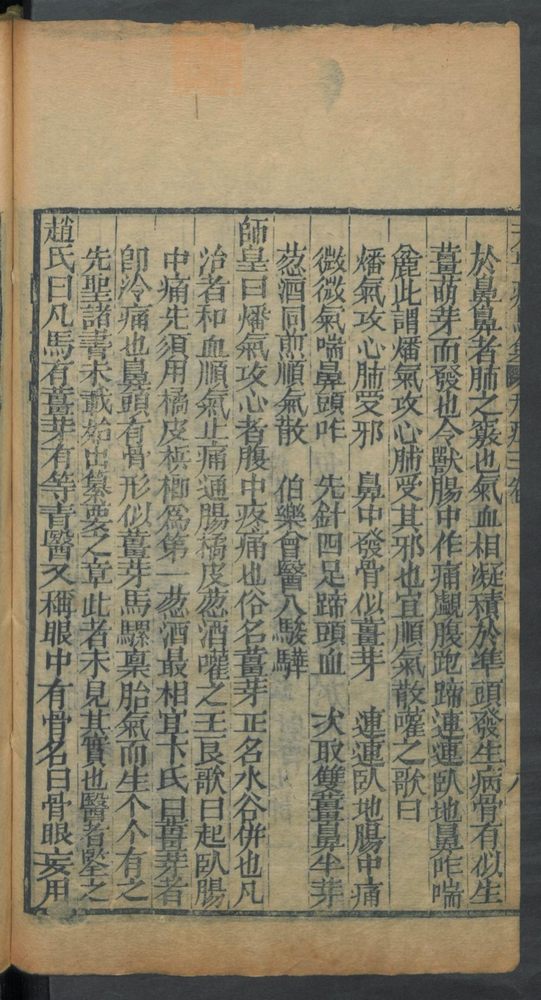 於鼻鼻者肺之竅也氣血相凝積於準頭發生病骨有似生
薑萌芽而發也令獸腸中作痛覷腹跑蹄連連臥地鼻咋喘
麄此謂燔氣攻心肺受其邪也宜順氣散嚾之歌曰
燔氣攻心肺受邪 鼻中發骨似薑芽 連連臥地腸中痛
微微氣喘鼻頭咋 先針四足蹄頭血 次取雙薑鼻半芽
葱酒同煎順氣散 伯樂曾醫八駿驊
師皇曰燔氣攻心者腹中疼痛也俗名薑芽正名水谷併也凡
治者和血順氣止痛通腸橘皮葱酒嚾之王良歌曰起臥腸
中痛先須用橘皮檳榔為第一葱酒最相宜卞氏曰薑芽者
卽冷痛也鼻頭有骨形似薑芽馬騾稟胎氣而生个个有之
先聖諸書未載始出纂要之章此者未見其實也醫者堅之
趙氏曰凡馬有薑芽有等盲醫又稱眼中有骨名曰骨眼妄用